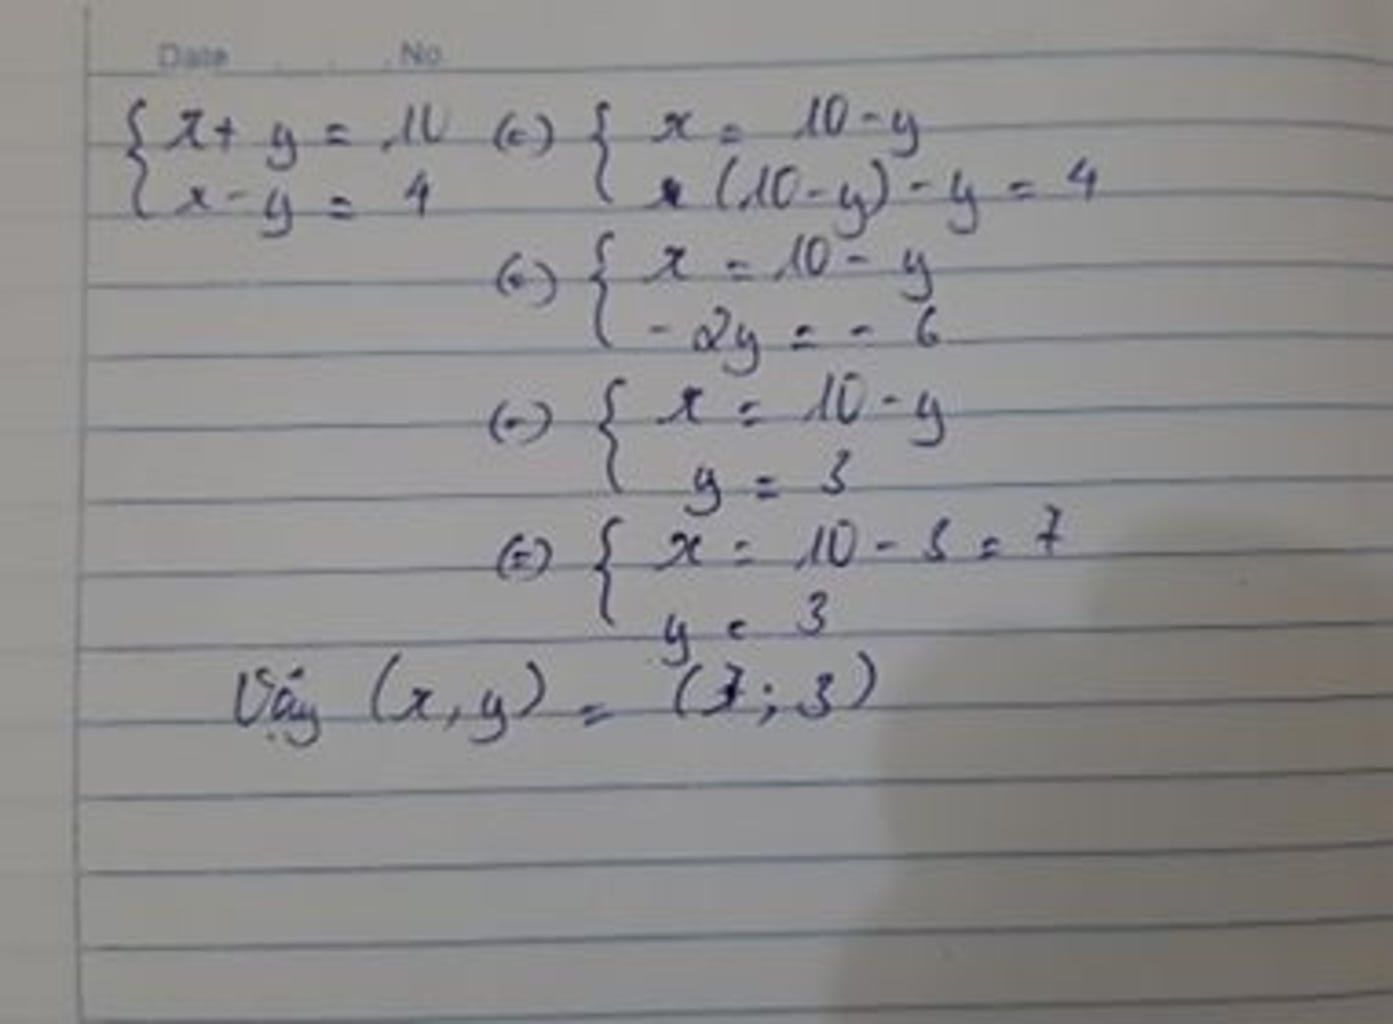 Date . . . No
{ x + y = 10 (=) { x = 10 - y
{ x - y = 4 { (10 - y) - y = 4
(=) { x = 10 - y
{ - 2y = - 6
(=) { x = 10 - y
{ y = 3
(=) { x = 10 - 3 = 7
{ y = 3
Vậy (x, y) = (7; 3)